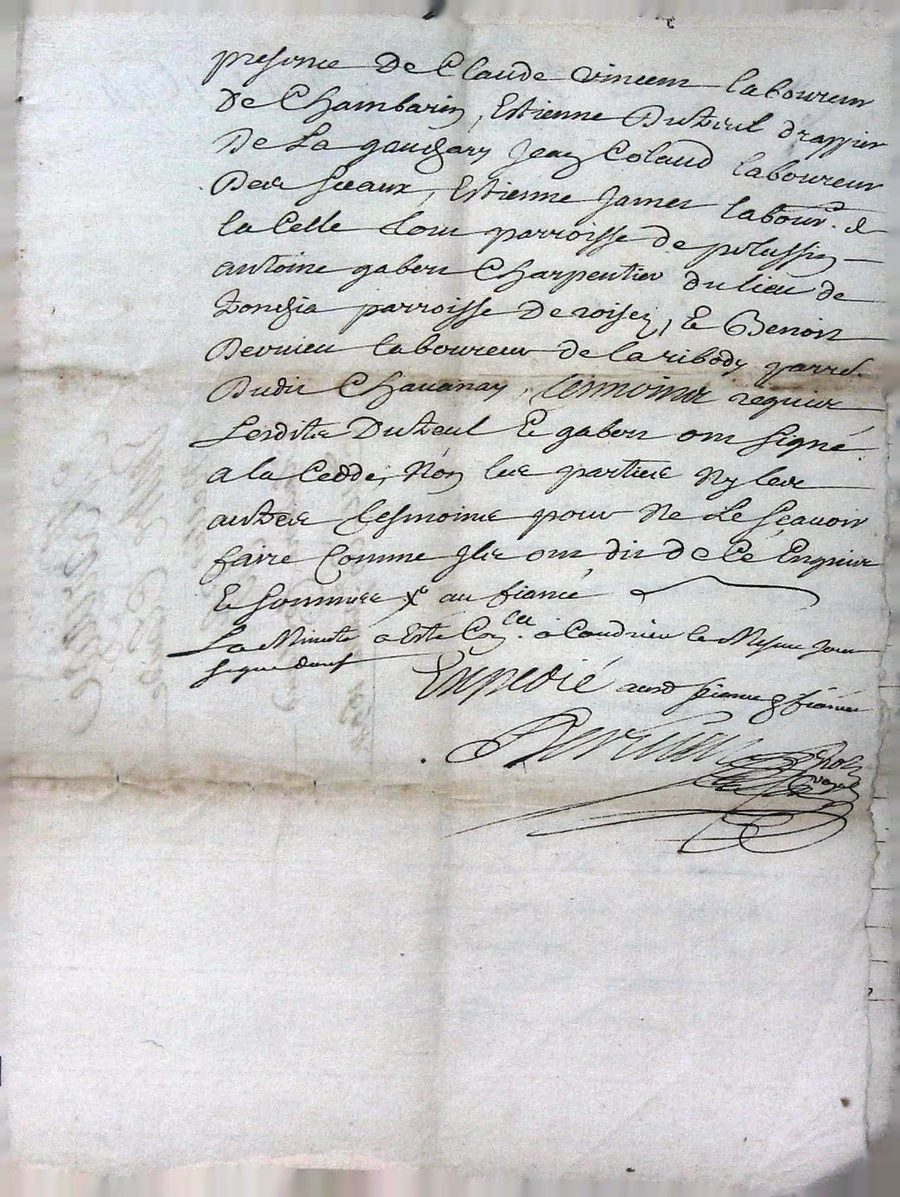 presence de Claude vincent laboureur
de Chambarin, Estienne Duteul drappier
de La gaugary Jean Colaud laboureur
des sceaux, Estienne James labour.r d
la Celle parroisse de pelussin
antoine gabert Charpentier du lieu de
parroisse de roisey, & Benoit
Dervieu laboureur de la ribody parre.
dudit Chavanay, tesmoins requis
Lesdits Duteul & gabert ont signé
a la Cedde, Non les parties Ny les
autres tesmoins pour Ne le sçavoir
faire Comme Ils ont dit de Ce Enquis
& sommes au fiancé
La Minute a este Con.lee a Condrieu le Mesme jour
Expedié ausd fiancés
Dervieu
Not
royal